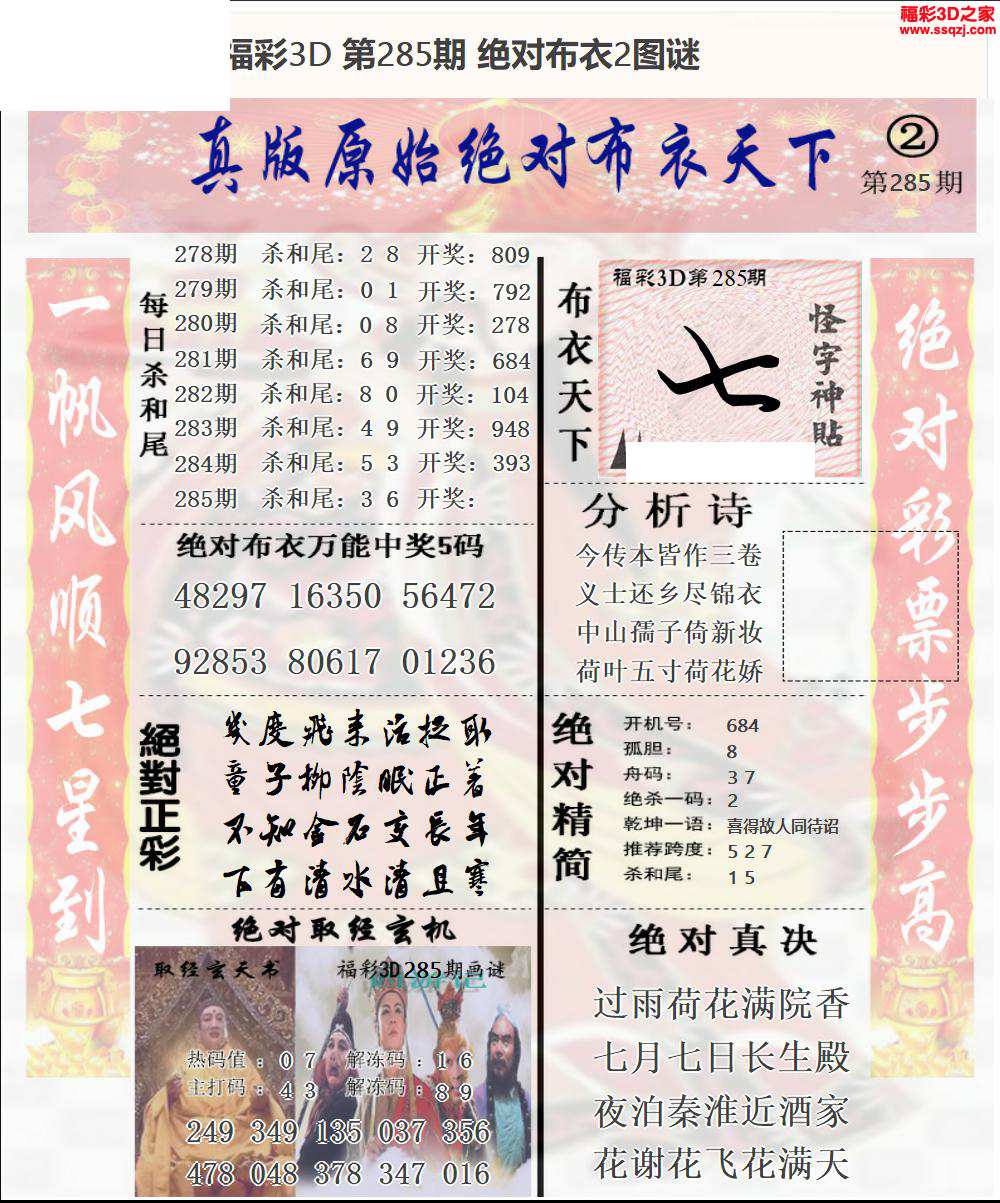 福彩3D之家
www.ssqzj.com
福彩3D 第285期 绝对布衣2图谜
真版原始绝对布衣天下
②
第285期
一帆风顺七星到
每日杀和尾
278期 杀和尾：2 8 开奖：809
279期 杀和尾：0 1 开奖：792
280期 杀和尾：0 8 开奖：278
281期 杀和尾：6 9 开奖：684
282期 杀和尾：8 0 开奖：104
283期 杀和尾：4 9 开奖：948
284期 杀和尾：5 3 开奖：393
285期 杀和尾：3 6 开奖：
绝对布衣万能中奖5码
48297 16350 56472
92853 80617 01236
絕對正彩
幾度飛来活捉取
童子柳陰眠正着
不知金石交長年
下有清水清且寒
绝对取经玄机
取经玄天书
福彩3D285期画谜
热码值：0 7 解冻码：1 6
主打码：4 3 解冻码：8 9
249 349 135 037 356
478 048 378 347 016
布衣天下
福彩3D第285期
怪字神贴
分析诗
今传本皆作三卷
义士还乡尽锦衣
中山孺子倚新妆
荷叶五寸荷花娇
绝对精简
开机号：684
孤胆：8
舟码：3 7
绝杀一码：2
乾坤一语：喜得故人同待诏
推荐跨度：5 2 7
杀和尾：1 5
绝对真决
过雨荷花满院香
七月七日长生殿
夜泊秦淮近酒家
花谢花飞花满天
绝对彩票步步高